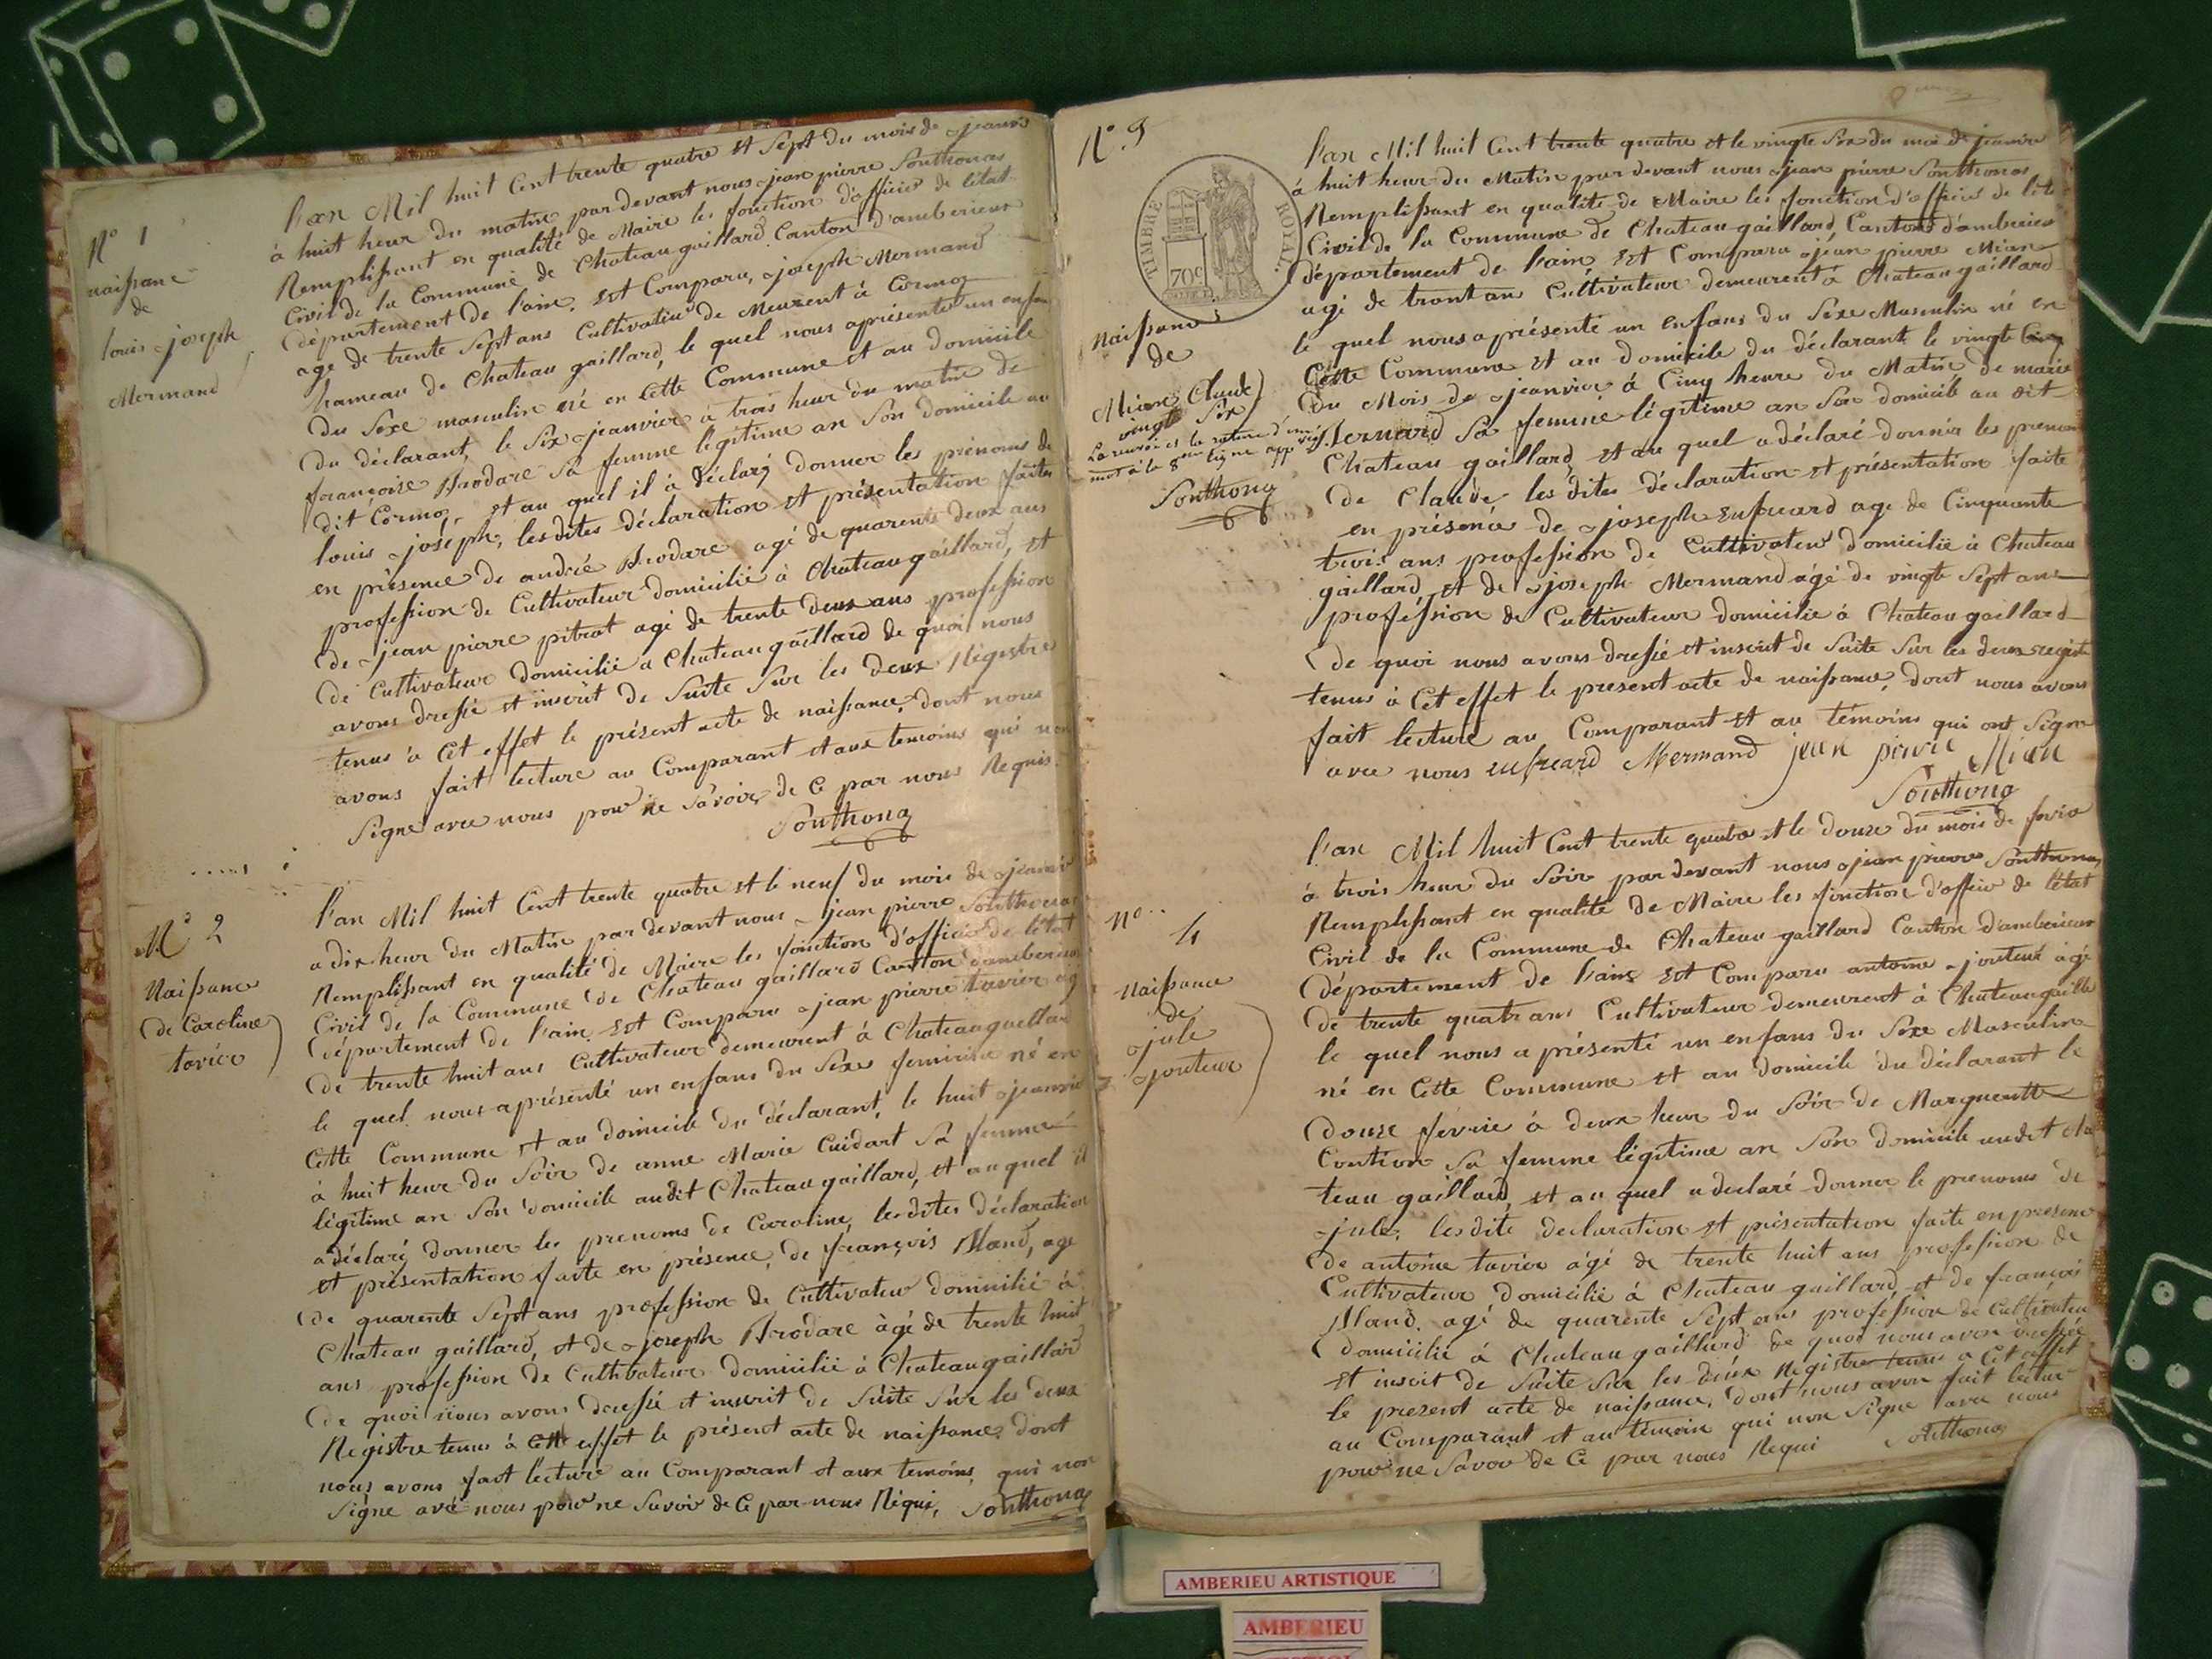 N° 1
naissance
de
louis joseph
Mermand
l'an Mil huit Cent trente quatre et Sept du mois de jeanvie
à huit heur du matin par devant nous jean pierre Sonthonas
Remplissant en qualité de Maire les fonction d'officier de l'état
Civil de la Commune de Chateau gaillard Canton d'amberieux
département de l'ain, est Comparu, joseph Mermand
age de trente Sept ans Cultivateur de Meurent à Cormoz
hameau de Chateau gaillard, le quel nous a présenté un enfan
du Sexe masculin né en Cette Commune et au domicile
du déclarant, le Six jeanvier à trois heur du matin de
françoise Brodare Sa femme légitime an Son domicile au
dit Cormoz, et au quel il à déclaré donner les prénoms de
louis joseph, les dites déclaration et présentation faites
en présence de andré Brodare agé de quarente deux ans
profession de Cultivateur domicilié à Chateau gaillard, et
de jean pierre pitrat agé de trente deux ans profession
de Cultivateur domicilié a Chateau gaillard de quoi nous
avons dressé et inscrit de Suite Sur les deux Régistre
tenus à Cet effet le présent acte de naissance, dont nous
avons fait lecture au Comparant et aux temoins qui non
Signé avec nous pour ne Savoir de Ce par nous Requis.
Sonthonas
N° 2
Naissance
de Caroline
tavier
l'an Mil huit Cent trente quatre et le neuf du mois de jeanvie
a dix heur du Matin par devant nous jean pierre Sonthonas
Remplissant en qualité de Maire les fonction d'officié de l'état
Civil de la Commune de Chateau gaillard Canton d'amberieux
département de l'ain est Comparu jean pierre tavier agé
de trente huit ans Cultivateur demeurent à Chateau gaillar
le quel nous a présenté un enfans du Sexe feminine né en
Cette Commune et au domicile du déclarant, le huit jeanvie
à huit heur du Soir de anne Marie Cuidart Sa femme
légitime an Son domicile audit Chateau gaillard, et au quel il
a déclaré donner les prenoms de Caroline, les dites déclaration
et présentation faite en présence, de françois Mand, age
de quarente Sept ans profession de Cultivateur domicilié à
Chateau gaillard, et de joseph Brodare àgé de trente huit
ans profession de Cultivateur domicilié à Chateau gaillard
de quoi nous avons dressé et inscrit de Suite Sur les deux
Registre tenus à Cett effet le présent acte de naissance, dont
nous avons fait lecture au Comparant et aux temoins, qui non
Signe avec nous pour ne Savoir de Ce par nous Réquis, Sonthonas
N° 3
TIMBRE ROYAL.
70c
Naissance
de
Mian Claude
vingt Six
mot à la 8eme ligne
Sonthonas
l'an Mil huit Cent trente quatre et le vingte Six du moi de jeanvie
à huit heur du Matin par devant nous jean pierre Sonthonas
Remplissant en qualité de Maire les fonction d'officié de l'éta
Civil de la Commune de Chateau gaillard, Canton d'ambérieux
département de l'ain, est Comparu jean pierre Mian
agé de trontans Cultivateur demeurent à Chateau gaillard
le quel nous a présenté un enfans du Sexe Masculin né en
Cette Commune et au domicile du déclarant le vingte Cinq
du Mois de jeanvier à Cinq heure du Matin de marie
Bernard Sa femme légitime an Son domicile au dit
Chateau gaillard, et au quel a déclaré donnér les prenom
de Claude les dites déclaration et présentation faite
en présence de joseph Enfreard age de Cinquante
trois ans profession de Cultivateur domicilié à Chateau
gaillard, et de joseph Mermand àgé de vingte Sept ans
proféssion de Cultivateur domicilié à Chateau gaillard
de quoi nous avons dressé et inscrit de Suite Sur les deux regist
tenus à Cet effet le present acte de naissance, dont nous avons
fait lecture au Comparant et au témoins qui ont Signe
avec nous enfreard Mermand jean pierre Mian
Sonthonas
N° 4
Naissance
de
jule
jouteur
l'an Mil huit Cent trente quatre et le douze du mois de fevrie
à trois heur du Soir par devant nous jean pierre Sonthonas
Remplissant en qualité de Maire les fonction d'officié de l'état
Civil de la Commune de Chateau gaillard Canton d'amberieux
département de l'ain est Comparu antoine jouteur àgé
de trente quatr ans Cultivateur demeurent à Chateau gaillar
le quel nous a présenté un enfans du Sexe Masculin
né en Cette Commune et au domicile du déclarant le
Douze février à deux heur du Soir de Margueritte
Coution Sa femme légitime an Son domicile audit cha
teau gaillard, et au quel a declaré donner le prenoms de
jule, les dite declaration et présentation faite en presence
de antoine tavier àgé de trente huit ans profession de
Cultivateur domicilié à Chateau gaillard, et de françois
Mand. agé de quarente Sept ans proféssion de Cultivateu
domicilié à Chateau gaillard de quoi nous avon dressée
et inscrit de Suite Sur les deux Registre tenus a Cet effet
le present acte de naissance, dont nous avon fait lectur
au Comparant et au témoin qui non Signe avec nous
pour ne Savoir de Ce par nous Requi Sonthonas
AMBERIEU ARTISTIQUE
AMBERIEU